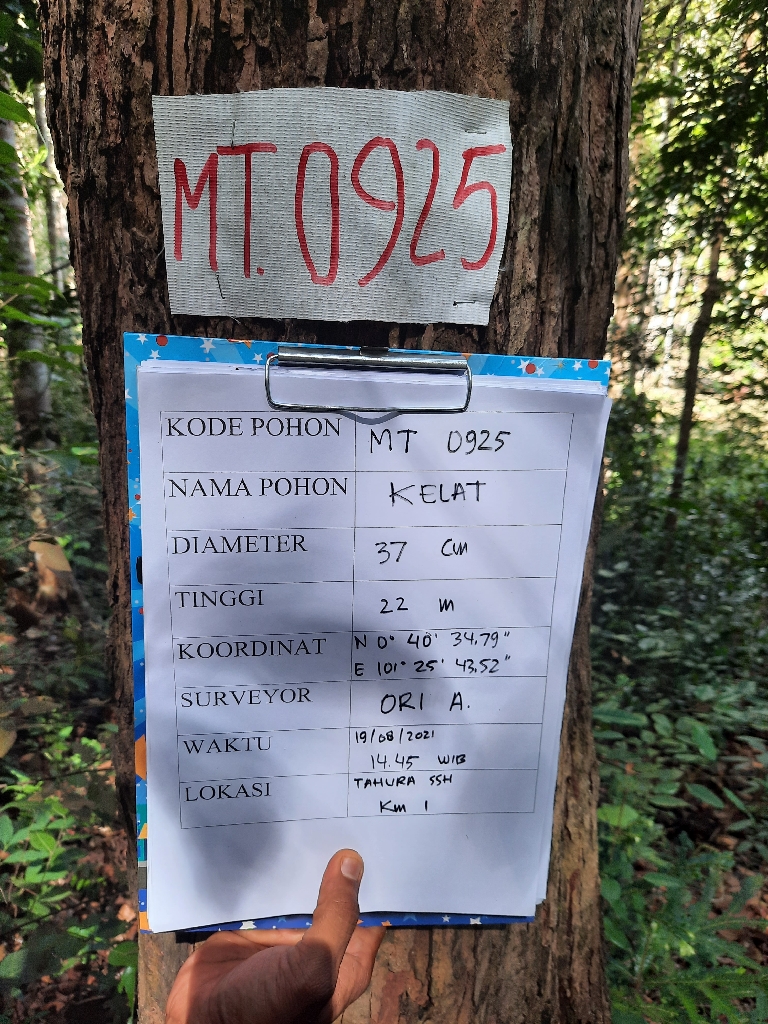 MT. 0925
KODE POHON MT 0925
NAMA POHON KELAT
DIAMETER 37 cm
TINGGI 22 m
KOORDINAT N 0° 40' 34.79"
E 101° 25' 43.52"
SURVEYOR ORI A.
WAKTU 19/08/2021
14.45 WIB
LOKASI TAHURA SSH
Km 1